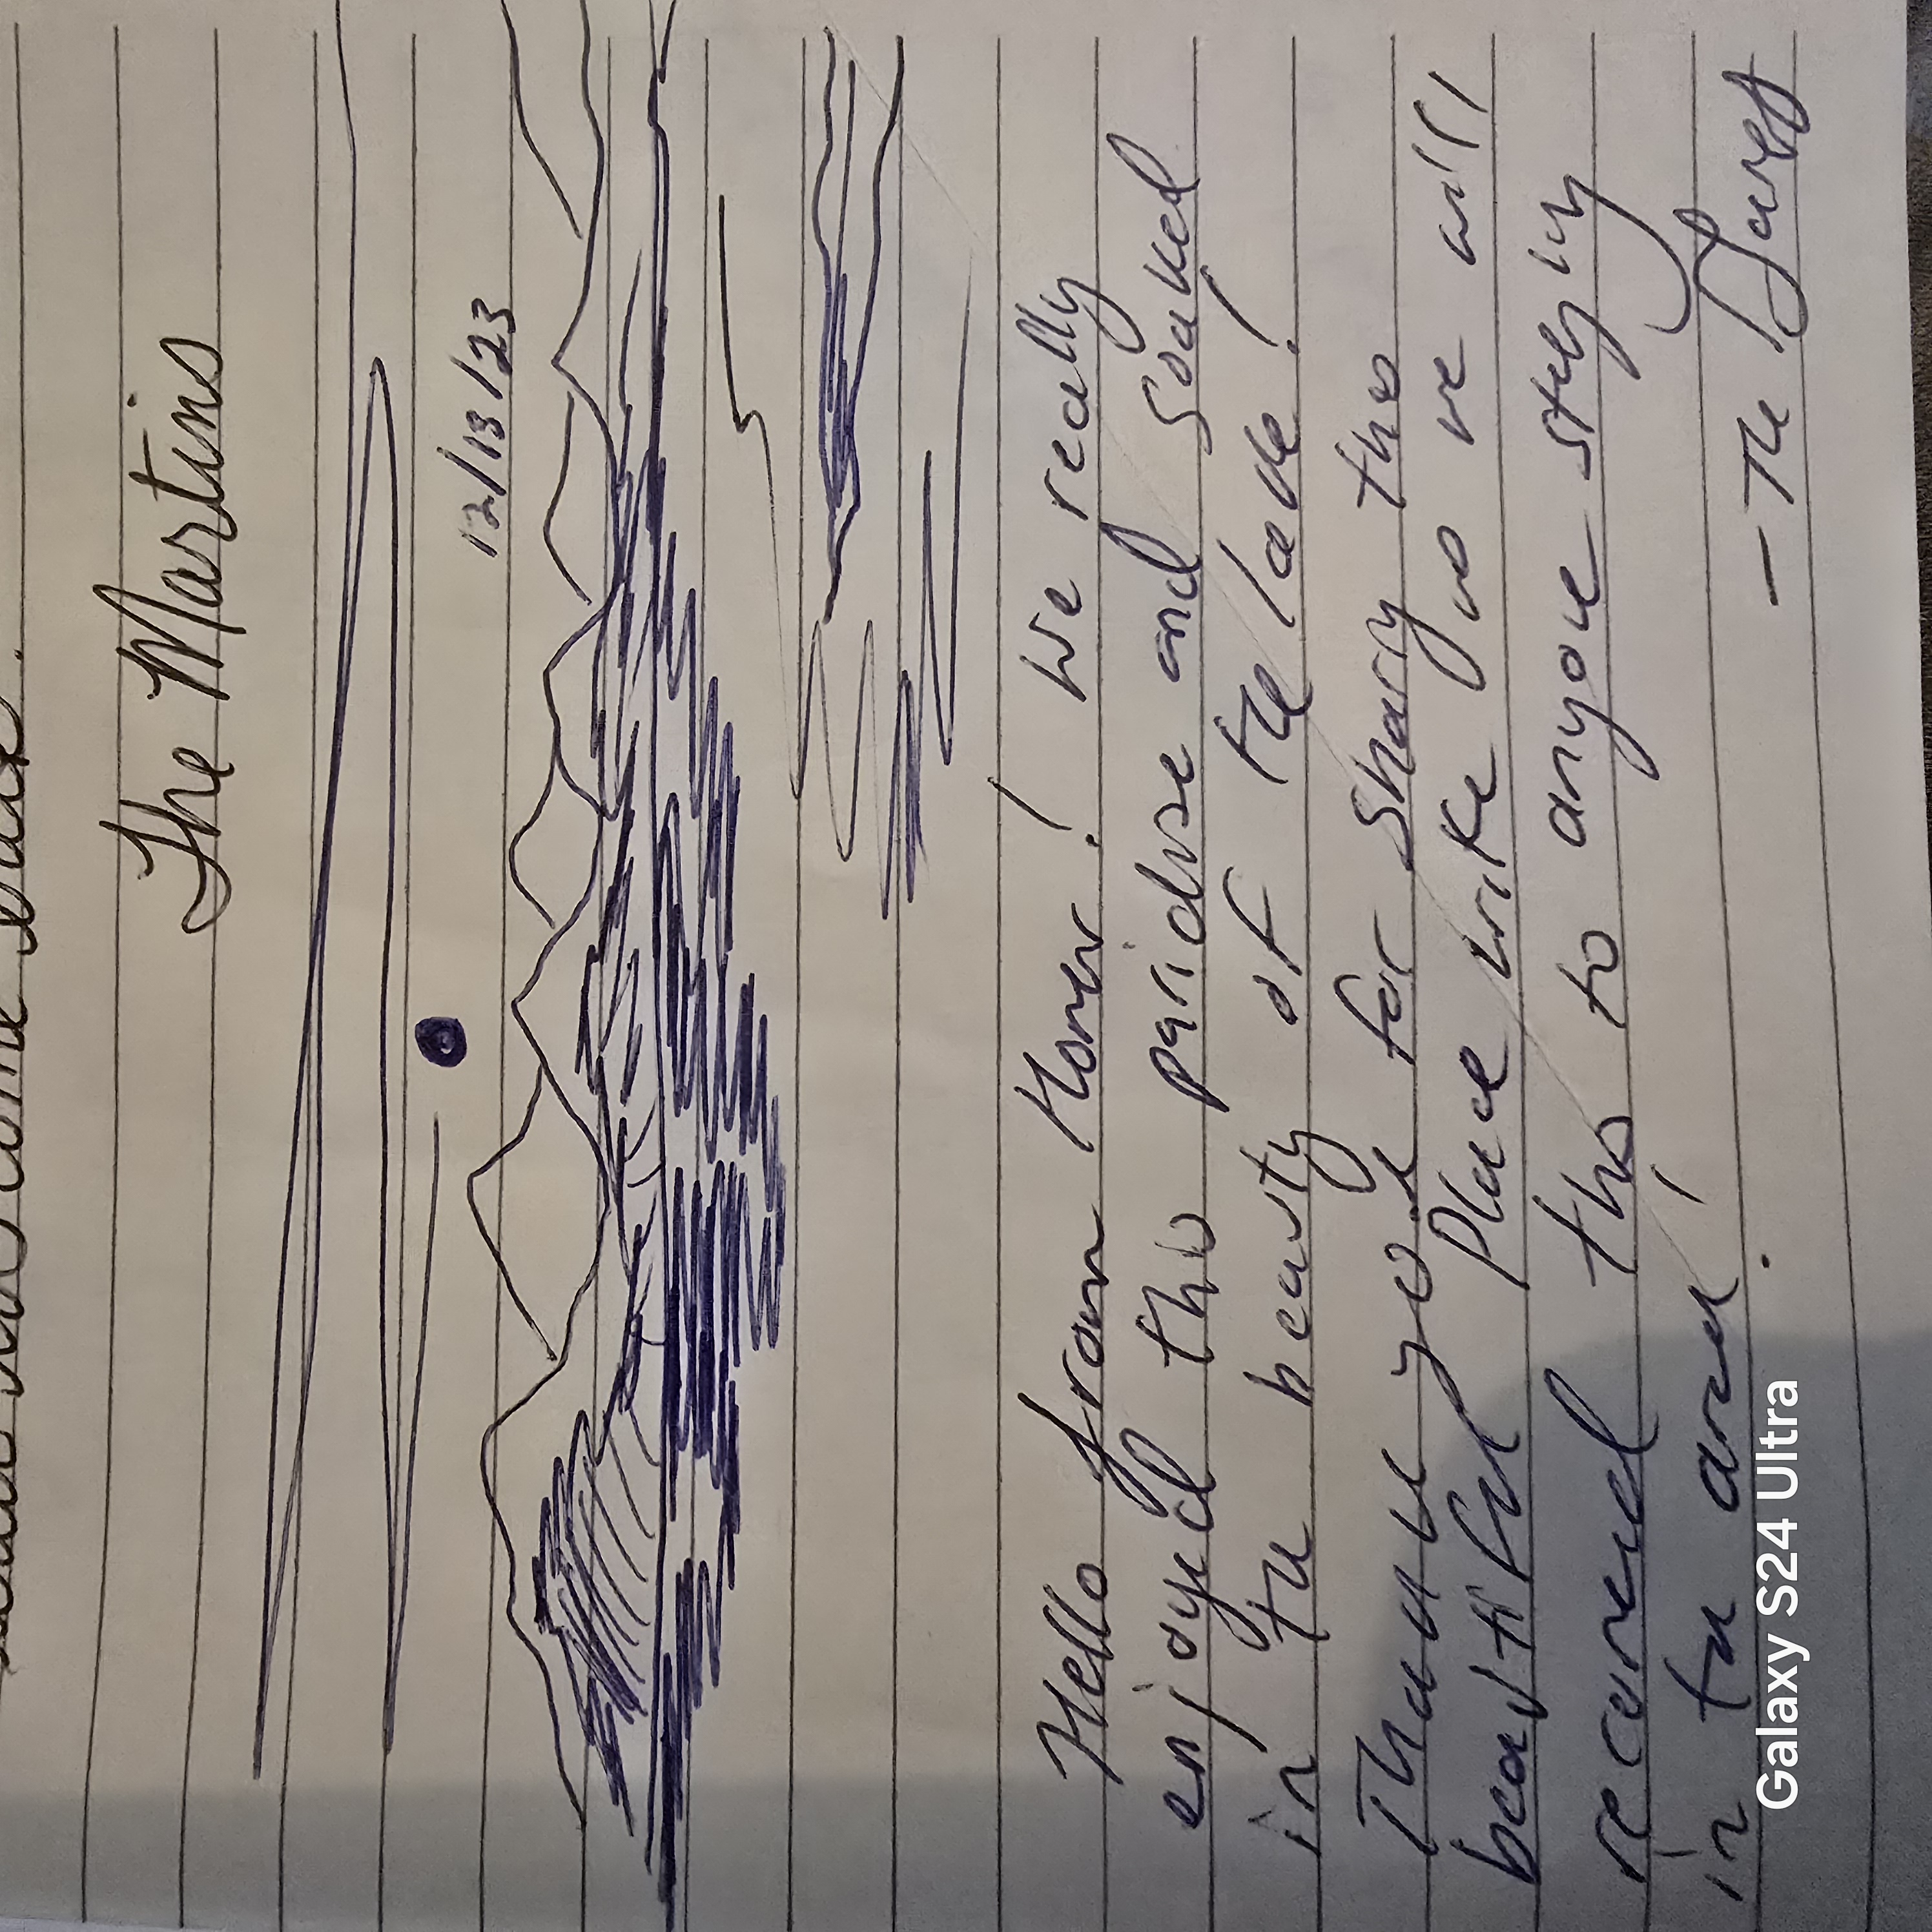 come back.
The Martins
12/13/23
Hello from Homer! We really
enjoyed this paridise and soaked
in the beauty of the lake!
Thank you for sharing this
beautiful place us we will
this to anyone staying
in the area!
- The
Galaxy S24 Ultra